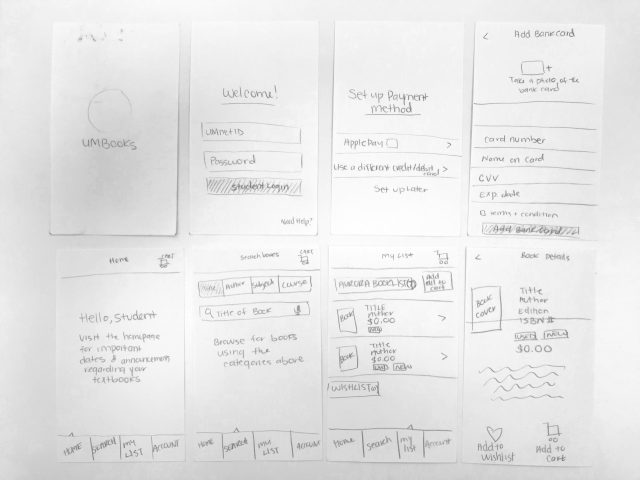 UMBooks
Welcome!
UMnetID
Password
Student Login
Need Help?
Set up Payment
method
Apple Pay
Use a different credit/debit
card
Set up Later
Add Bankcard
Take a photo of the
bank card
Card number
Name on Card
CVV
Exp. date
terms + condition
Add Bank Card
Home
CART
Hello, Student
Visit the homepage
for important
dates & announcement
regarding your
textbooks
HOME
SEARCH
MY
LIST
ACCOUNT
CART
Author
Subject
Course
Title of Book
Browse for books
using the
categories above
HOME
SEARCH
MY
LIST
ACCOUNT
My List
AURORA BOOKLIST
add
all to
cart
Book
TITLE
Author
$0.00
Book
Title
Author
$0.00
USED NEW
WISHLIST
Home
Search
my
list
Account
Book Details
Book
cover
Title
Author
Edition
ISBN #
USED NEW
$0.00
Add to
wishlist
Add to
Cart